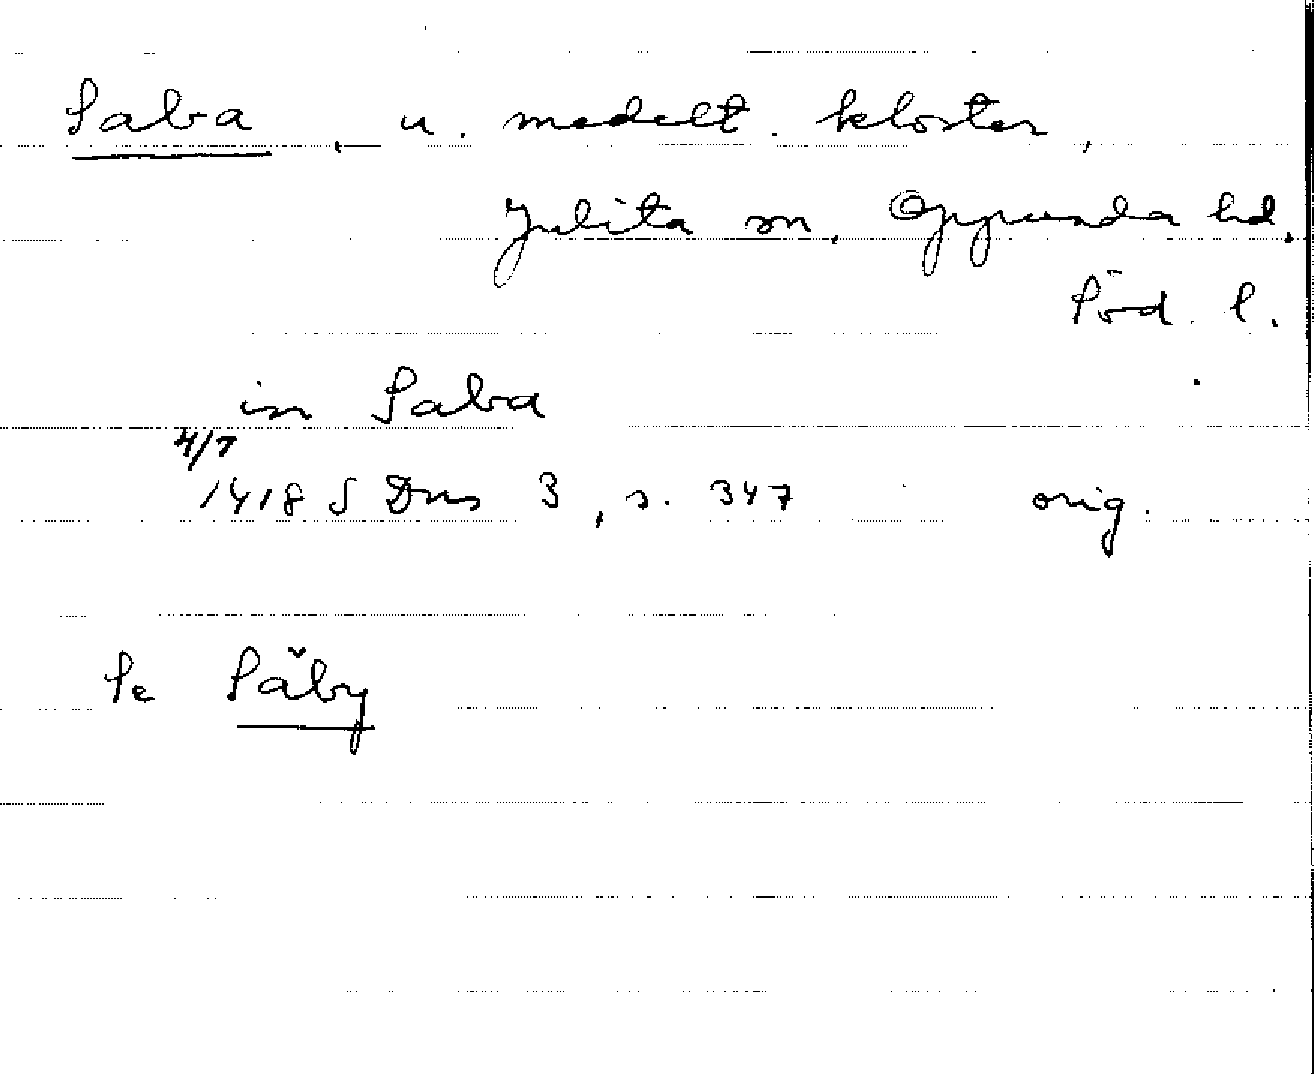 Saba, u. medelt. kloster,
Julita sn, Oppunda hd.
Söd. l.
in Saba
4/7
1418 S Dns 3, s. 347 orig.
Se Säby